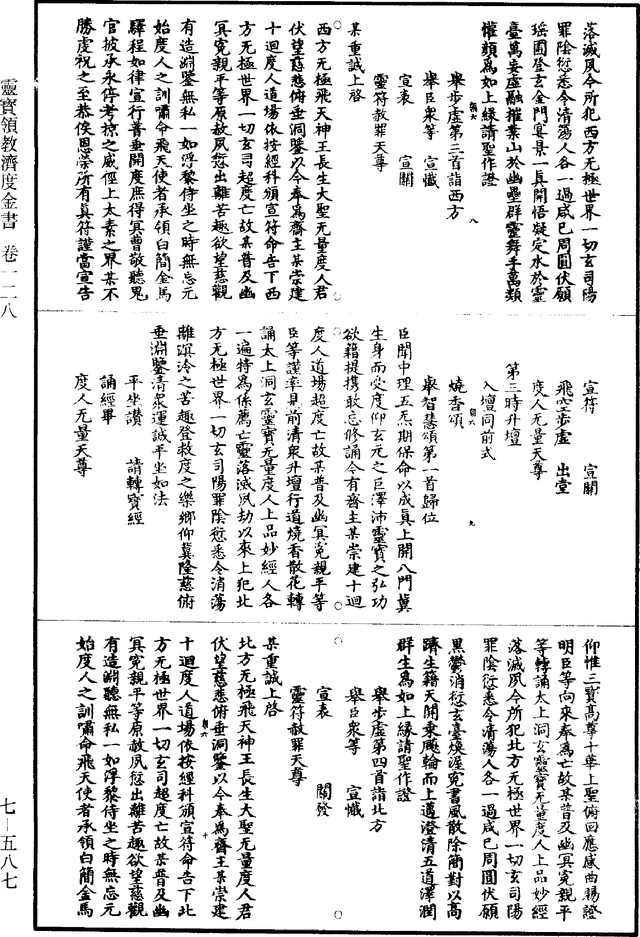 落滅夙今所犯西方无極世界一切玄司陽
罪陰愆悉令清蕩人各一過咸已周圓伏願
瑶圃登玄金門宴景一真開悟凝定水於靈
臺萬妄虛融摧業山於幽壘群靈舞手萬類
懽顏為如上緣請聖作證
舉步虛第三首詣西方
舉臣衆等　宣懺
宣表　宣關
靈符赦罪天尊
某重誠上啓
西方无極飛天神王長生大聖无量度人君
伏望慈悲俯垂洞鑒以今奉為齋主某崇建
十迴度人道場依按經科頒宣符命告下西
方无極世界一切玄司超度亡故某普及幽
冥寃親平等原赦夙愆出離苦趣欲望慈觀
有造淵鑒無私一如浮黎侍坐之時無忘元
始度人之訓嘯命飛天使者承領白簡金馬
驛程如律宣行普垂開度庶得冥曹敬聽鬼
官披承永停考掠之威俓上太素之界某不
勝虔祝之至恭俟恩榮所有真符謹當宣告
宣符　宣關
飛空步虛　出堂
度人无量天尊
第三時升壇
入壇同前式
燒香頌
舉智慧頌第一首歸位
臣聞中理五炁期保命以成真上開八門冀
生身而受度仰玄元之巨澤沛靈寶之弘功
欲藉提携敢忘修誦今有齋主某崇建十迴
度人道場超度亡故某普及幽冥寃親平等
臣等謹率見前清衆升壇行道燒香散花轉
誦太上洞玄靈寶无量度人上品妙經人各
一遍特為係薦亡靈落滅夙劫以來上犯北
方无極世界一切玄司陽罪陰愆悉令消蕩
離溟泠之苦趣登救度之樂鄉仰冀隆慈俯
垂淵鑒清衆運誠平坐如法
平坐讃　請轉寶經
誦經畢
度人无量天尊
仰惟三寶高尊十華上聖俯回應感曲賜證
明臣等向來奉為亡故某普及幽冥寃親平
等轉誦太上洞玄靈寶无量度人上品妙經
落滅夙今所犯北方无極世界一切玄司陽
罪陰愆悉令清蕩人各一過咸已周圓伏願
黑鬱消愆玄臺煥渥寃書風散除簡對以高
躋生籍天開乘飈輪而上邁澄清五道澤潤
群生為如上緣請聖作證
舉步虛第四首詣北方
舉臣衆等　宣懺
宣表　關發
靈符赦罪天尊
某重誠上啓
北方无極飛天神王長生大聖无量度人君
伏望慈悲俯垂洞鑒以今奉為齋主某崇建
十迴度人道場依按經科頒宣符命告下北
方无極世界一切玄司超度亡故某普及幽
冥寃親平等原赦夙愆出離苦趣欲望慈觀
有造淵聽無私一如浮黎侍坐之時無忘元
始度人之訓嘯命飛天使者承領白簡金馬
靈寶領教濟度金書　卷一二八
七—五八七